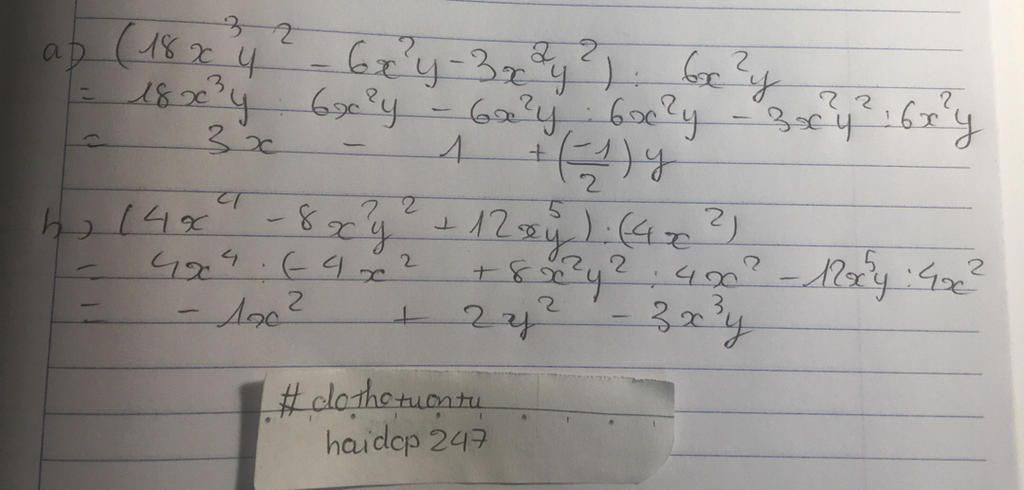 a) (18x³y² - 6x²y - 3x²y²) : 6x²y
= 18x³y : 6x²y - 6x²y : 6x²y - 3x²y² : 6x²y
= 3x - 1 + (-1/2)y
b, (4x⁴ - 8x²y² + 12x⁵y) : (-4x²)
= 4x⁴ : (-4x² + 8x²y² : 4x² - 12x⁵y : 4x²
= - 1x² + 2y² - 3x³y
#clothotuontu
haidcp247